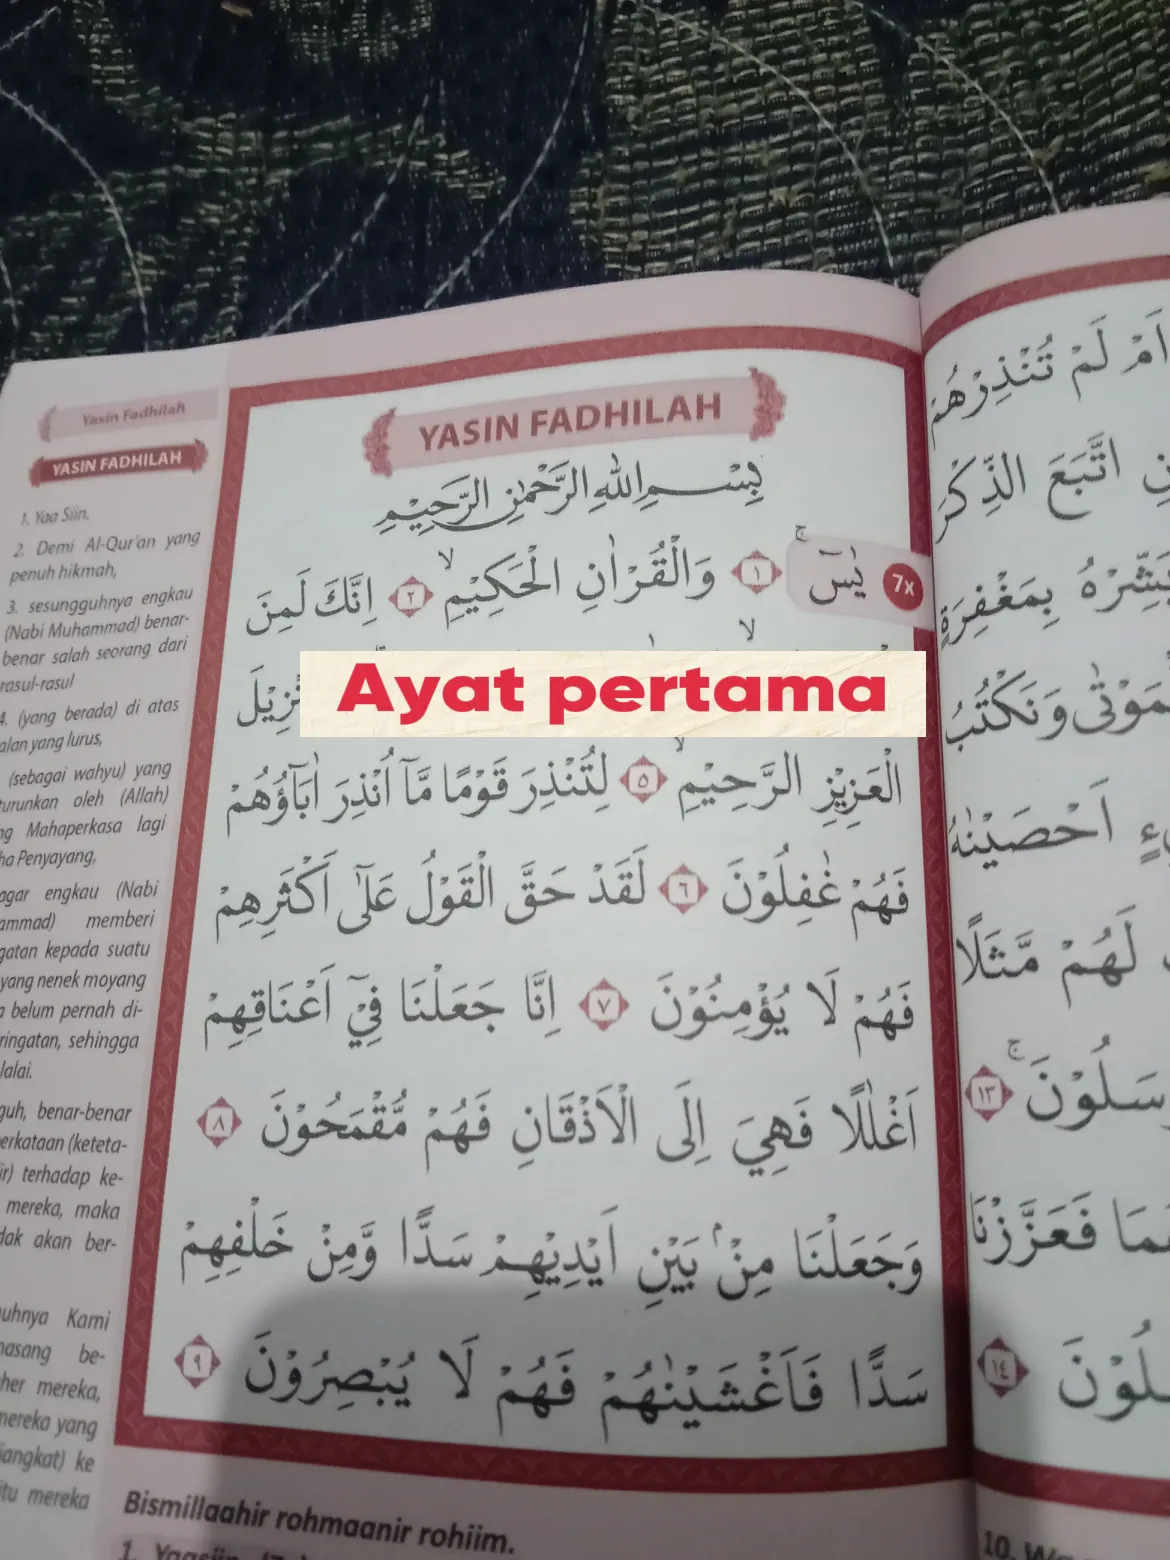 Yasin Fadhilah
YASIN FADHILAH
1. Yaa Siin.
2. Demi Al-Qur'an yang
penuh hikmah,
3. sesungguhnya engkau
(Nabi Muhammad) benar-
benar salah seorang dari
rasul-rasul
4. (yang berada) di atas
jalan yang lurus,
(sebagai wahyu) yang
turunkan oleh (Allah)
Mahaperkasa lagi
Penyayang,
agar engkau (Nabi
memberi
kepada suatu
yang nenek moyang
belum pernah di-
sehingga
lalai.
benar-benar
(keteta-
terhadap ke-
mereka, maka
akan ber-
Kami
be-
mereka,
mereka yang
ke
itu mereka
YASIN FADHILAH
بِسْمِ اللهِ الرَّحْمٰنِ الرَّحِيْمِ
7x يٰسۤ ۚ ١ وَالْقُرْاٰنِ الْحَكِيْمِۙ ٢ اِنَّكَ لَمِنَ
Ayat pertama
الْعَزِيْزِ الرَّحِيْمِۙ ٥ لِتُنْذِرَ قَوْمًا مَّآ اُنْذِرَ اٰبَاۤؤُهُمْ
فَهُمْ غٰفِلُوْنَ ٦ لَقَدْ حَقَّ الْقَوْلُ عَلٰٓى اَكْثَرِهِمْ
فَهُمْ لَا يُؤْمِنُوْنَ ٧ اِنَّا جَعَلْنَا فِيْٓ اَعْنَاقِهِمْ
اَغْلٰلًا فَهِيَ اِلَى الْاَذْقَانِ فَهُمْ مُّقْمَحُوْنَ ٨
وَجَعَلْنَا مِنْۢ بَيْنِ اَيْدِيْهِمْ سَدًّا وَّمِنْ خَلْفِهِمْ
سَدًّا فَاَغْشَيْنٰهُمْ فَهُمْ لَا يُبْصِرُوْنَ ٩
Bismillaahir rohmaanir rohiim.
1. Yaasiin.
اَمْ لَمْ تُنْذِرْهُمْ
اتَّبَعَ الذِّكْرَ
بِمَغْفِرَةٍ
وَنَكْتُبُ
اَحْصَيْنٰهُ
لَهُمْ مَّثَلًا
١٣
فَعَزَّزْنَا
١٤
10.